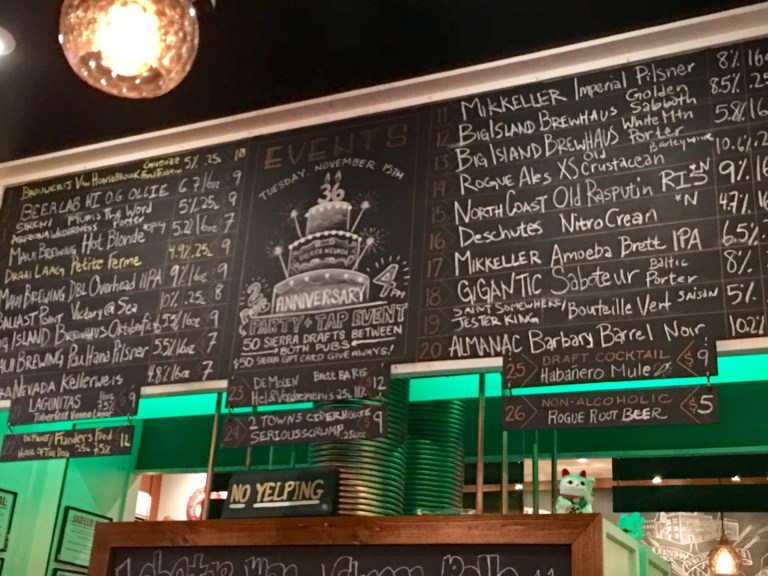 5% .25L 18
BEER LAB HI O.G. OLLIE 6.7/16oz 9
Mum's The Word 5%/.25L 9
Porter
MAUI BREWING Hot Blonde 5.2/16oz 7
DRAAI LAAG Petite Ferme 4.9%.25L 9
MAUI BREWING DBL Overhead IIPA 9%/16oz 9
BALLAST POINT Victory @ Sea 10% .25L 8
BIG ISLAND BREWHAUS Oktoberfest 5.5%/16oz 9
MAUI BREWING Pau Hana Pilsner 5.5%/16oz 7
SIERRA NEVADA Kellerweis 4.8%/16oz 7
LAGUNITAS $9
12
EVENTS
TUESDAY, NOVEMBER 15TH
36
SIERRA NEVADA
ANNIVERSARY
4PM
PARTY + TAP EVENT
50 SIERRA DRAFTS BETWEEN
BOTH PUBS
$50 SIERRA GIFT CARD GIVE AWAYS!
23 DE MOLEN BRETT BA RIS $12
24 2 TOWNS CIDERHOUSE $9
SERIOUSSCRUMP
11 MIKKELLER Imperial Pilsner 8% 16
12 BIG ISLAND BREWHAUS Golden Sabbath 8.5% .25
13 BIG ISLAND BREWHAUS White Mtn Porter 5.8%/16
14 ROGUE ALES XS Old Crustacean Barleywine 10.6%
15 NORTH COAST Old Rasputin RIS *N 9% 16
16 DESCHUTES Nitro Crean *N 4.7% 16
17 MIKKELLER Amoeba Brett IPA 6.5%
18 GIGANTIC Saboteur Baltic Porter 8%
19 SAINT SOMEWHERE/ JESTER KING Bouteille Vert SAISON 5%
20 ALMANAC Barbary Barrel Noir 10.2%
25 DRAFT COCKTAIL $9
HABANERO MULE
26 NON-ALCOHOLIC $5
ROGUE ROOT BEER
NO YELPING